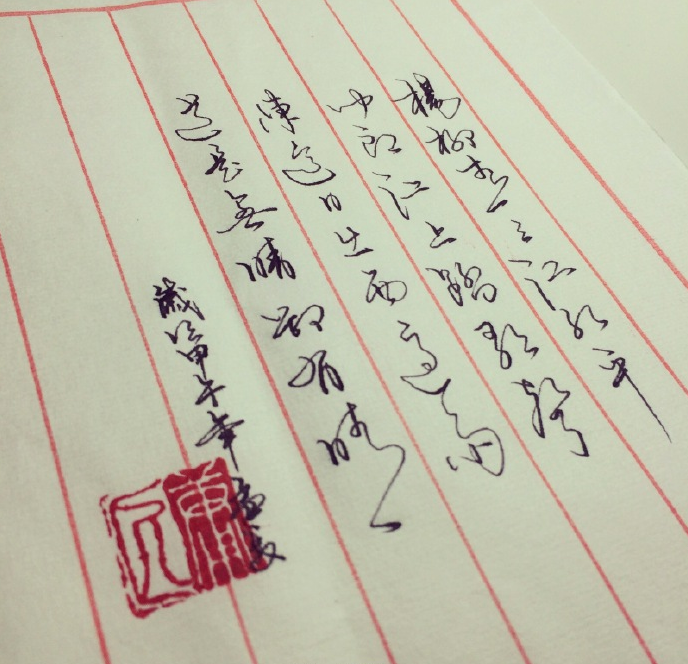 楊柳青々江水平
聞郎江上踏歌聲
東邊日出西邊雨
道是無晴卻有晴
歲次甲午年